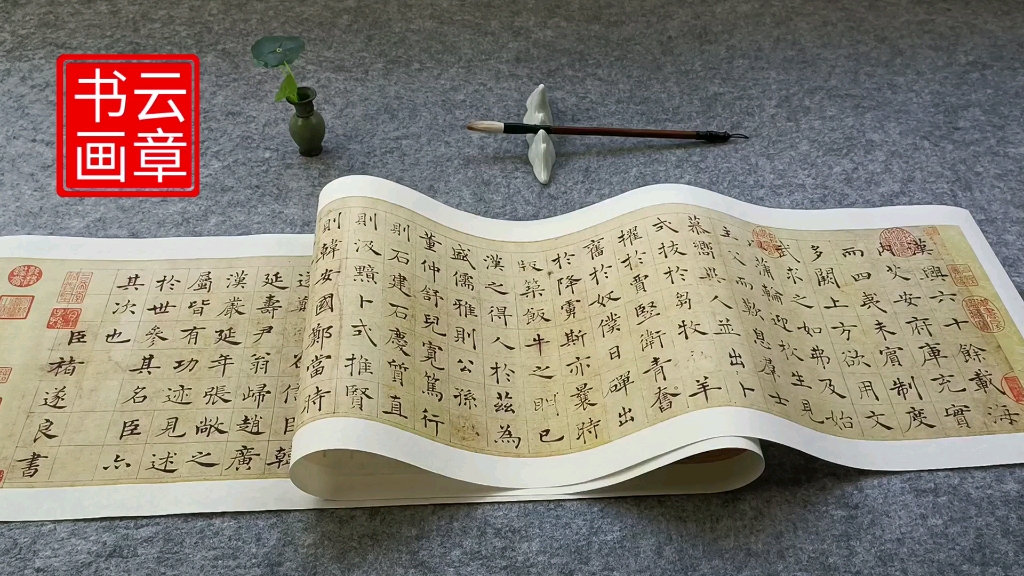 云章
书画
漢興六十餘載海
乂安府庫充實
而四夷未賓制度
多闕上方欲用文
武求之如弗及始
蒲輪迎枚生見
主父而歎息群士
慕嚮異人並出卜
式拔於芻牧羊
擢於賈豎衛青奮
於奴僕日磾出
於降虜斯亦曩時
版築飯牛之朋已
漢之得人於茲為
盛儒雅則公孫
董仲舒兒寬篤行
則石建石慶質直
則汲黯卜式推賢
則韓安國鄭當時
延壽尹翁歸趙廣
漢嚴延年張敞之
屬皆有功迹見述
於世參其名臣亦
其次也
臣褚遂良書